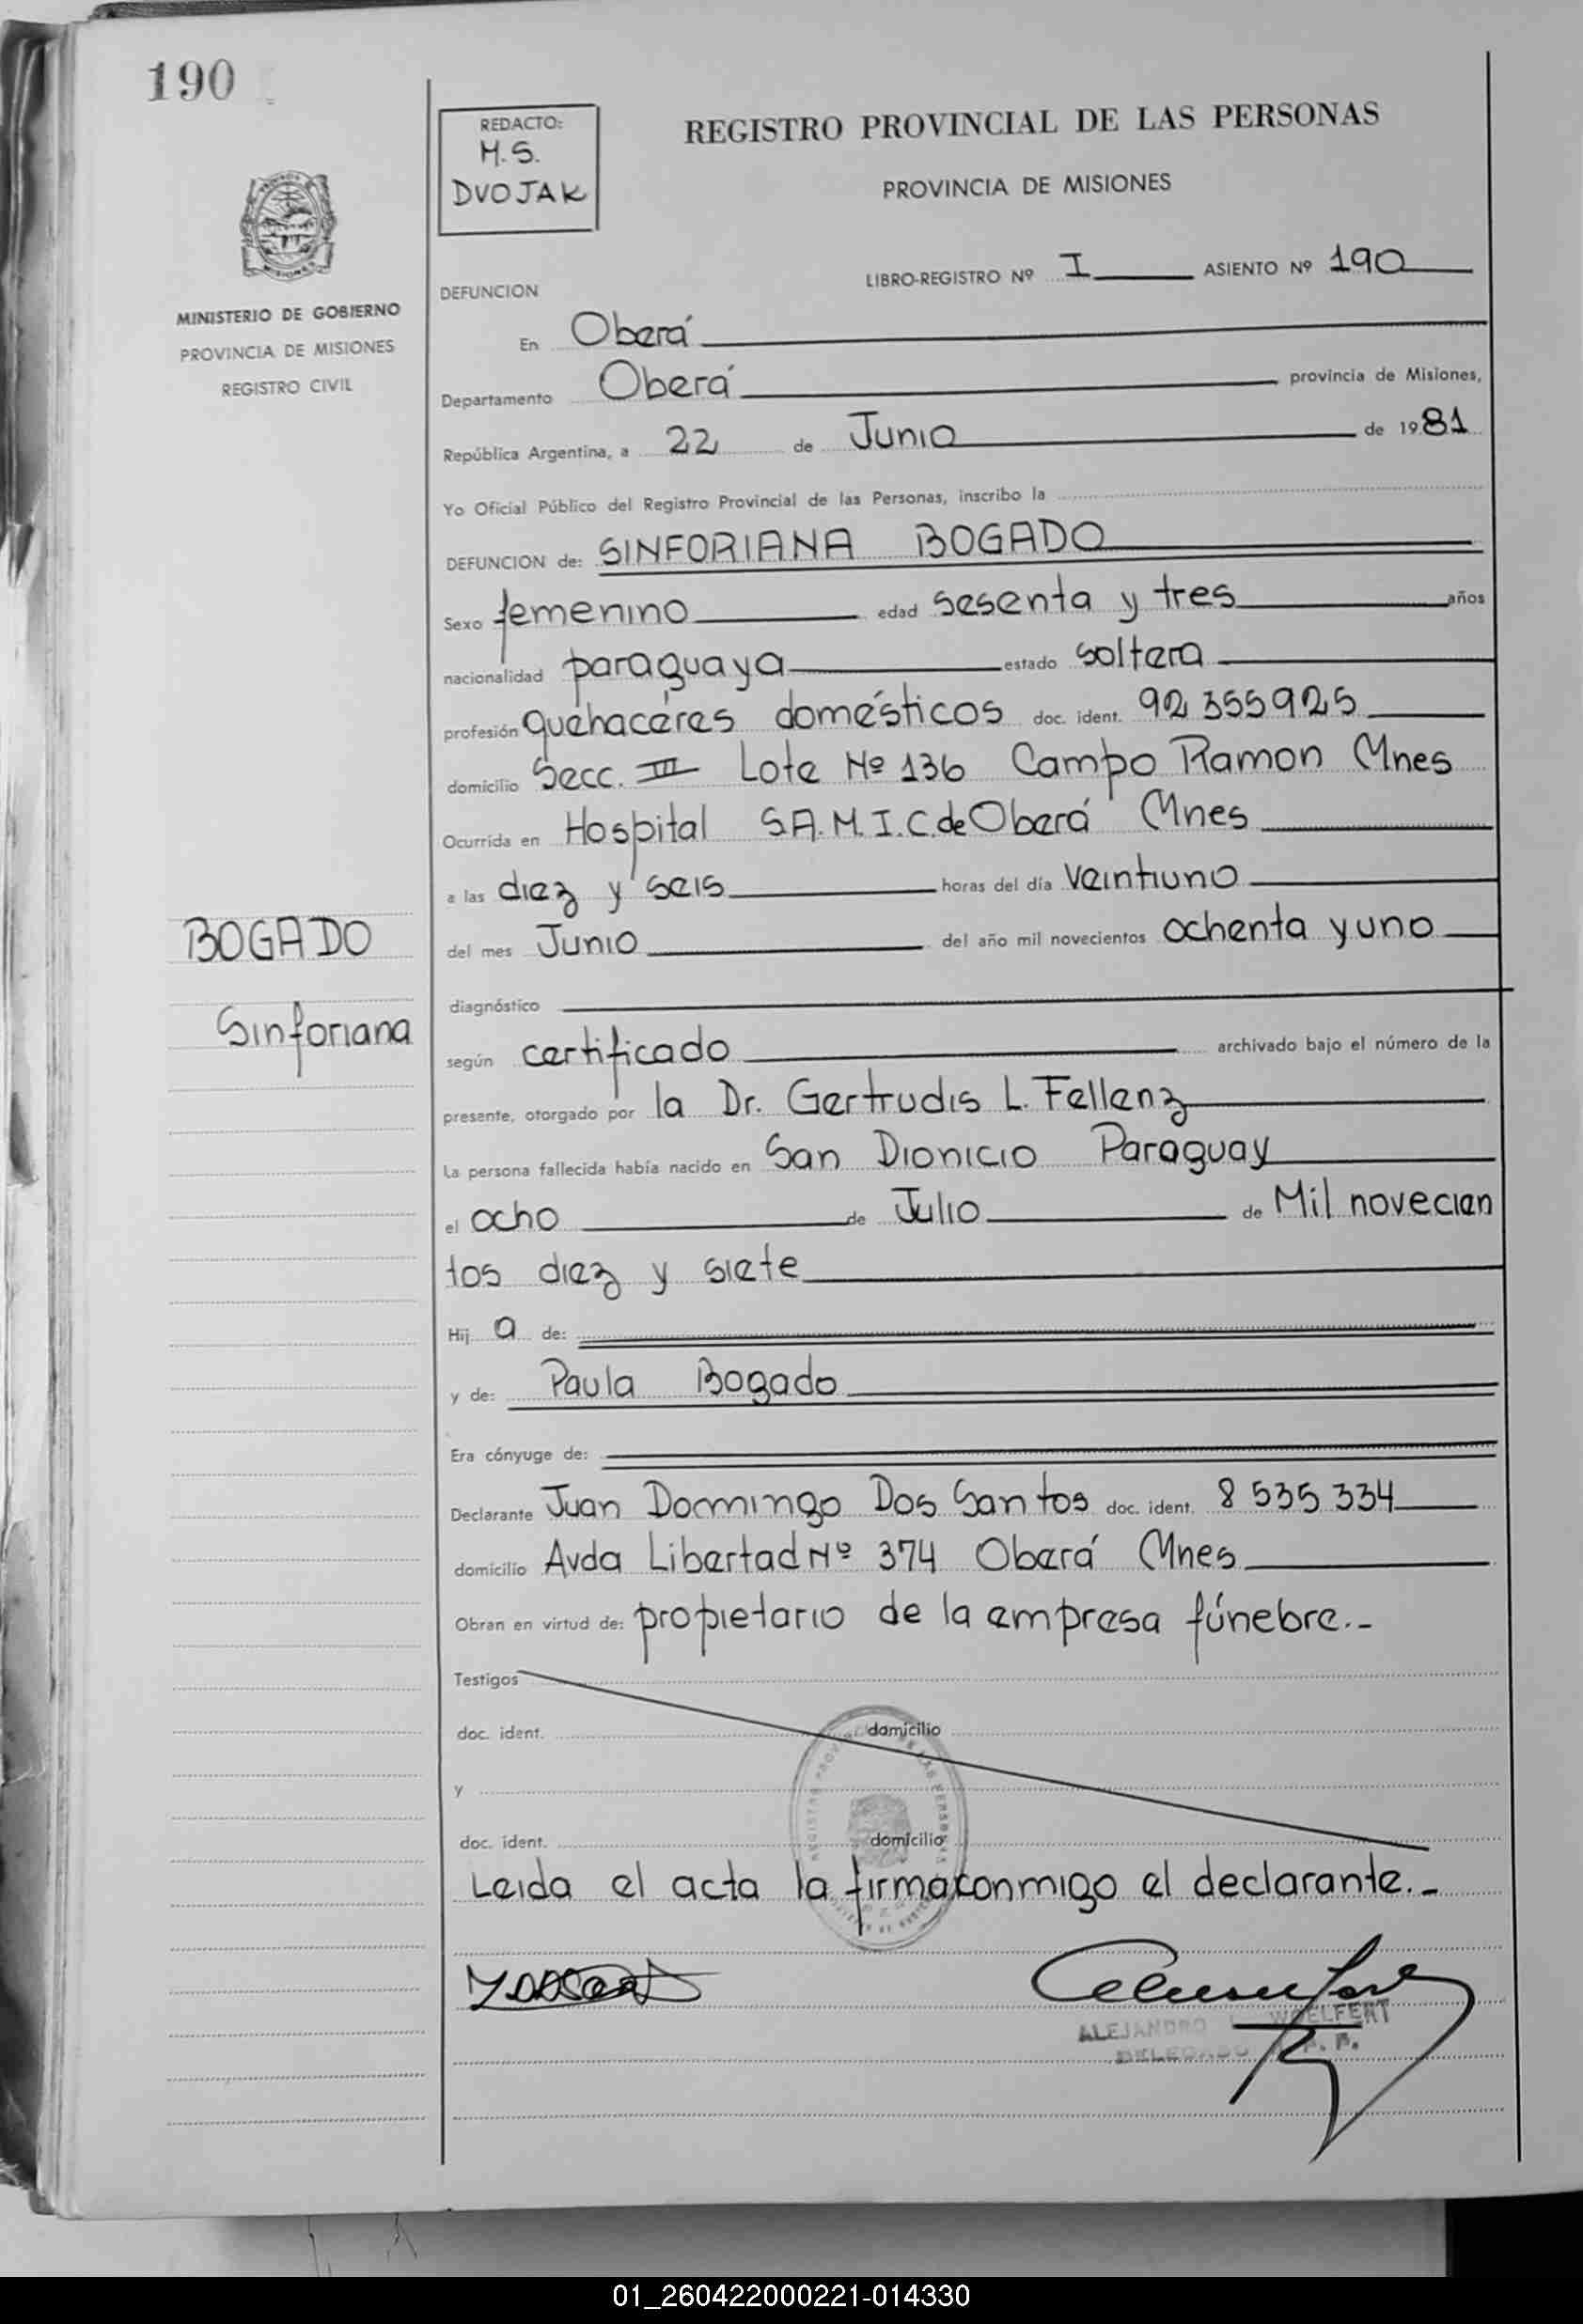 190
REDACTO:
M.S.
DVOJAK
REGISTRO PROVINCIAL DE LAS PERSONAS
PROVINCIA DE MISIONES
MINISTERIO DE GOBIERNO
PROVINCIA DE MISIONES
REGISTRO CIVIL
LIBRO-REGISTRO Nº I ASIENTO Nº 190
DEFUNCION
En Oberá
Departamento Oberá provincia de Misiones,
República Argentina, a 22 de Junio de 1981
Yo Oficial Público del Registro Provincial de las Personas, inscribo la
DEFUNCION de: SINFORIANA BOGADO
Sexo femenino edad sesenta y tres años
nacionalidad paraguaya estado soltera
profesión quehaceres domésticos doc. ident. 92 355925
domicilio Secc. III Lote Nº 136 Campo Ramon Mnes
Ocurrida en Hospital S.A.M.I.C. de Oberá Mnes
a las diez y seis horas del día veintiuno
del mes Junio del año mil novecientos ochenta y uno
BOGADO
Sinforiana
diagnóstico
según certificado archivado bajo el número de la
presente, otorgado por la Dr. Gertrudis L. Fellenz
La persona fallecida había nacido en San Dionicio Paraguay
el ocho de Julio de Mil novecien
tos diez y siete
Hij a de:
y de: Paula Bogado
Era cónyuge de:
Declarante Juan Domingo Dos Santos doc. ident. 8 535 334
domicilio Avda Libertad Nº 374 Oberá Mnes
Obran en virtud de: propietario de la empresa fúnebre.-
Testigos
doc. ident. domicilio
y
doc. ident. domicilio
Leida el acta la firma conmigo el declarante.-
ALEJANDRO WOELFERT
DELEGADO
01_260422000221-014330